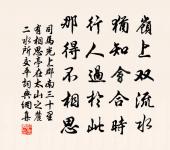 嶺上双流水
猶知會合時
行人過於此
那得不相思
司馬光上郡南三十里
有相思亭在太山之麓
二水所交平詞與網集